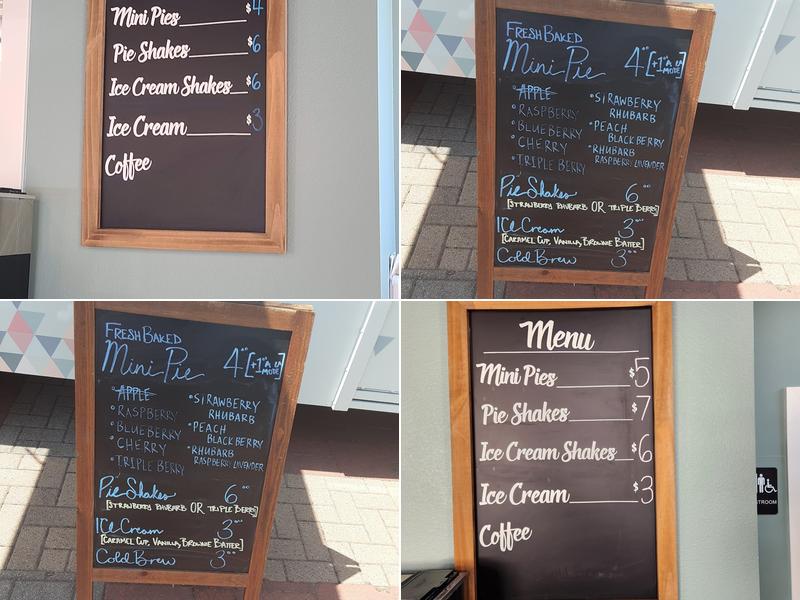 Mini Pies $4
Pie Shakes $6
Ice Cream Shakes $6
Ice Cream $3
Coffee
FRESH BAKED
Mini Pie 4°° [+1°° A LA MODE]
• APPLE
• RASPBERRY
• BLUEBERRY
• CHERRY
• TRIPLE BERRY
• STRAWBERRY
RHUBARB
• PEACH
BLACKBERRY
• RHUBARB
RASPBERRY LAVENDER
Pie Shakes 6°°
[STRAWBERRY RHUBARB OR TRIPLE BERRY]
ICE Cream 3°°
[CARAMEL CUP, VANILLA, BROWNIE BATTER]
Cold Brew 3°°
FRESH BAKED
Mini Pie 4°° [+1°° A LA MODE]
• APPLE
• RASPBERRY
• BLUEBERRY
• CHERRY
• TRIPLE BERRY
• STRAWBERRY
RHUBARB
• PEACH
BLACKBERRY
• RHUBARB
RASPBERRY LAVENDER
Pie Shakes 6°°
[STRAWBERRY RHUBARB OR TRIPLE BERRY]
ICE Cream 3°°
[CARAMEL CUP, VANILLA, BROWNIE BATTER]
Cold Brew 3°°
Menu
Mini Pies $5
Pie Shakes $7
Ice Cream Shakes $6
Ice Cream $3
Coffee